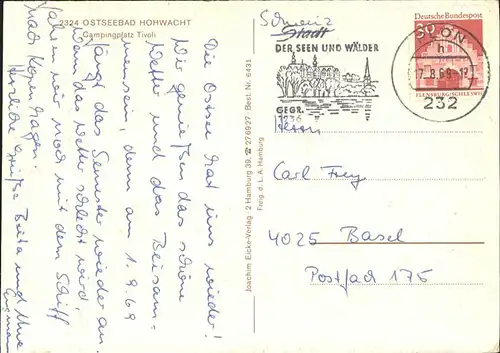 2324 OSTSEEBAD HOHWACHT
Campingplatz Tivoli
Die Ostsee hat uns wieder!
Wir genießen das schöne
Wetter und das Beisam-
mensein, denn am 1.9.69
fängt das Semester wieder an.
Wenn das Wetter schlecht wird,
fahren wir noch mit dem Schiff
nach Kopenhagen.
Herzliche Grüße Brita und Uwe
Joachim Eicke-Verlag · 2 Hamburg 39, ☎ 276927 · Best. Nr. 6431
Freig. d. L. A. Hamburg
Schweiz
Stadt
DER SEEN UND WÄLDER
GEGR.
1236
PLÖN
h
17.8.69-17
232
Deutsche Bundespost
30
FLENSBURG/SCHLESWIG
Herrn
Carl Frey
4025 Basel
Postfach 175